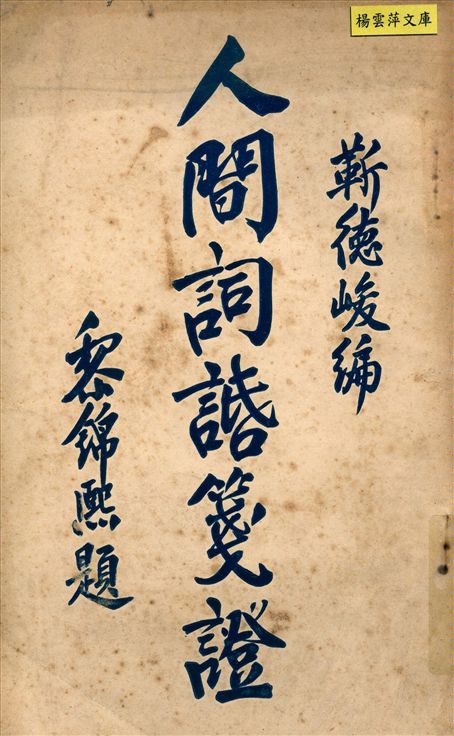 楊雲萍文庫
靳德峻編
人間詞話箋證
黎錦熙題